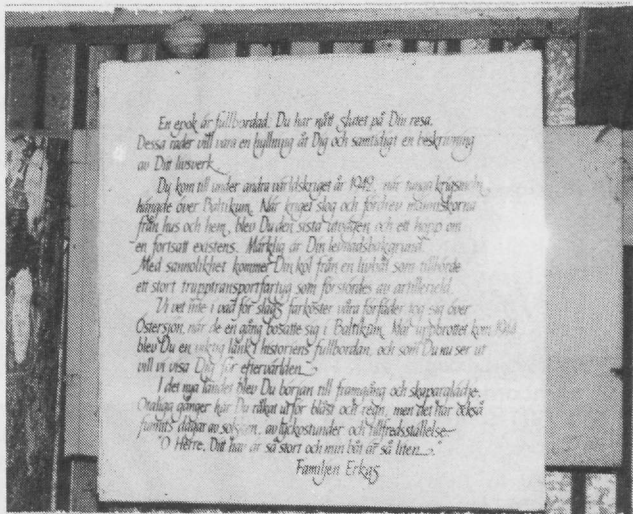 En epok är fullbordad. Du har nått slutet på Din resa.
Dessa rader vill vara en hyllning åt Dig och samtidigt en beskrivning
av Ditt livsverk.
Du kom till under andra världskriget år 1942, när tunga krigsmoln
hängde över Baltikum. När kriget slog och fördrev människorna
från hus och hem, blev Du den sista utvägen och ett hopp om
en fortsatt existens. Märklig är Din levnadsbakgrund.
Med sannolikhet kommer Din köl från en livbåt som tillhörde
ett stort trupptransportfartyg som förstördes av artillerield.
Vi vet inte i vad för slags farkoster våra förfäder tog sig över
Östersjön, när de en gång bosatte sig i Baltikum. När uppbrottet kom 1944
blev Du en viktig länk i historiens fullbordan, och som Du nu ser ut
vill vi visa Dig för eftervärlden.
I det nya landet blev Du början till framgång och skaparglädje.
Otaliga gånger har Du råkat ut för blåst och regn, men det har också
funnits dagar av solsken, av lyckostunder och tillfredsställelse.
"O Herre, Ditt hav är så stort och min båt är så liten..."
Familjen Erkas